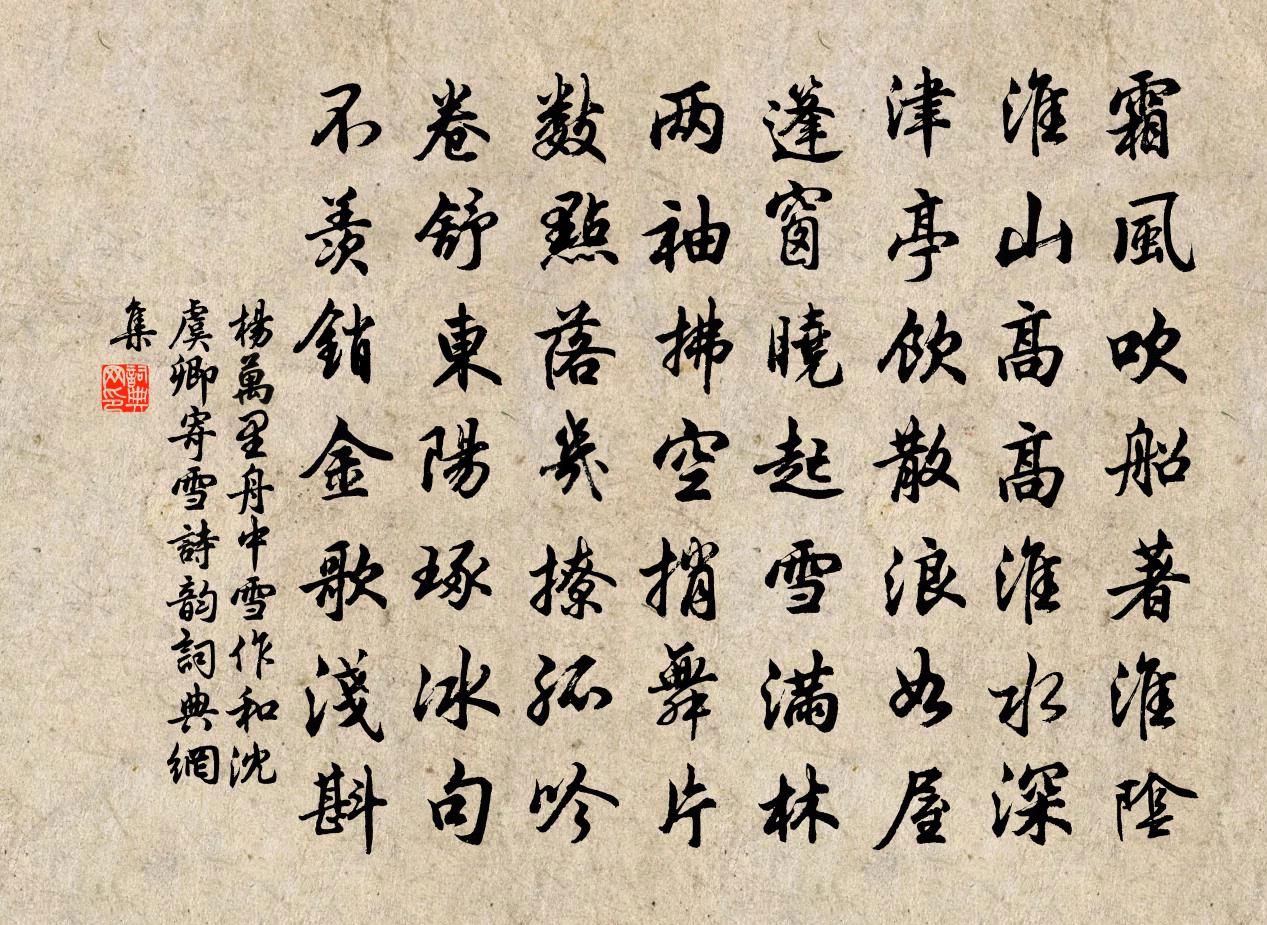 霜風吹船著淮陰
淮山高高淮水深
津亭飲散浪如屋
蓬窗曉起雪滿林
两袖拂空捎舞片
數點落幾撩孤吟
卷舒東陽琢冰句
不羨銷金歌淺斟
楊萬里舟中雪作和沈
虞卿寄雪詩韵詞典網
集
詞典网印